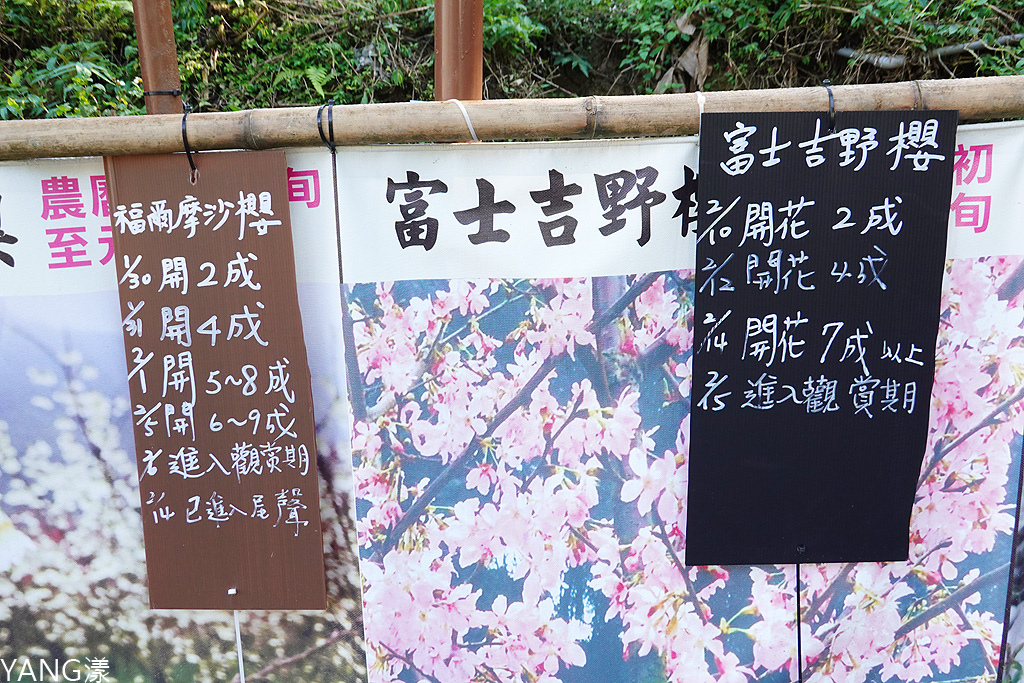 農曆
旬
至元
福爾摩沙櫻
1/30 開2成
1/31 開4成
2/1 開5~8成
2/5 開6~9成
2/6 進入觀賞期
2/14 已進入尾聲
富士吉野
初
旬
富士吉野櫻
2/10 開花 2成
2/12 開花 4成
2/14 開花 7成以上
2/15 進入觀賞期
YANG漾